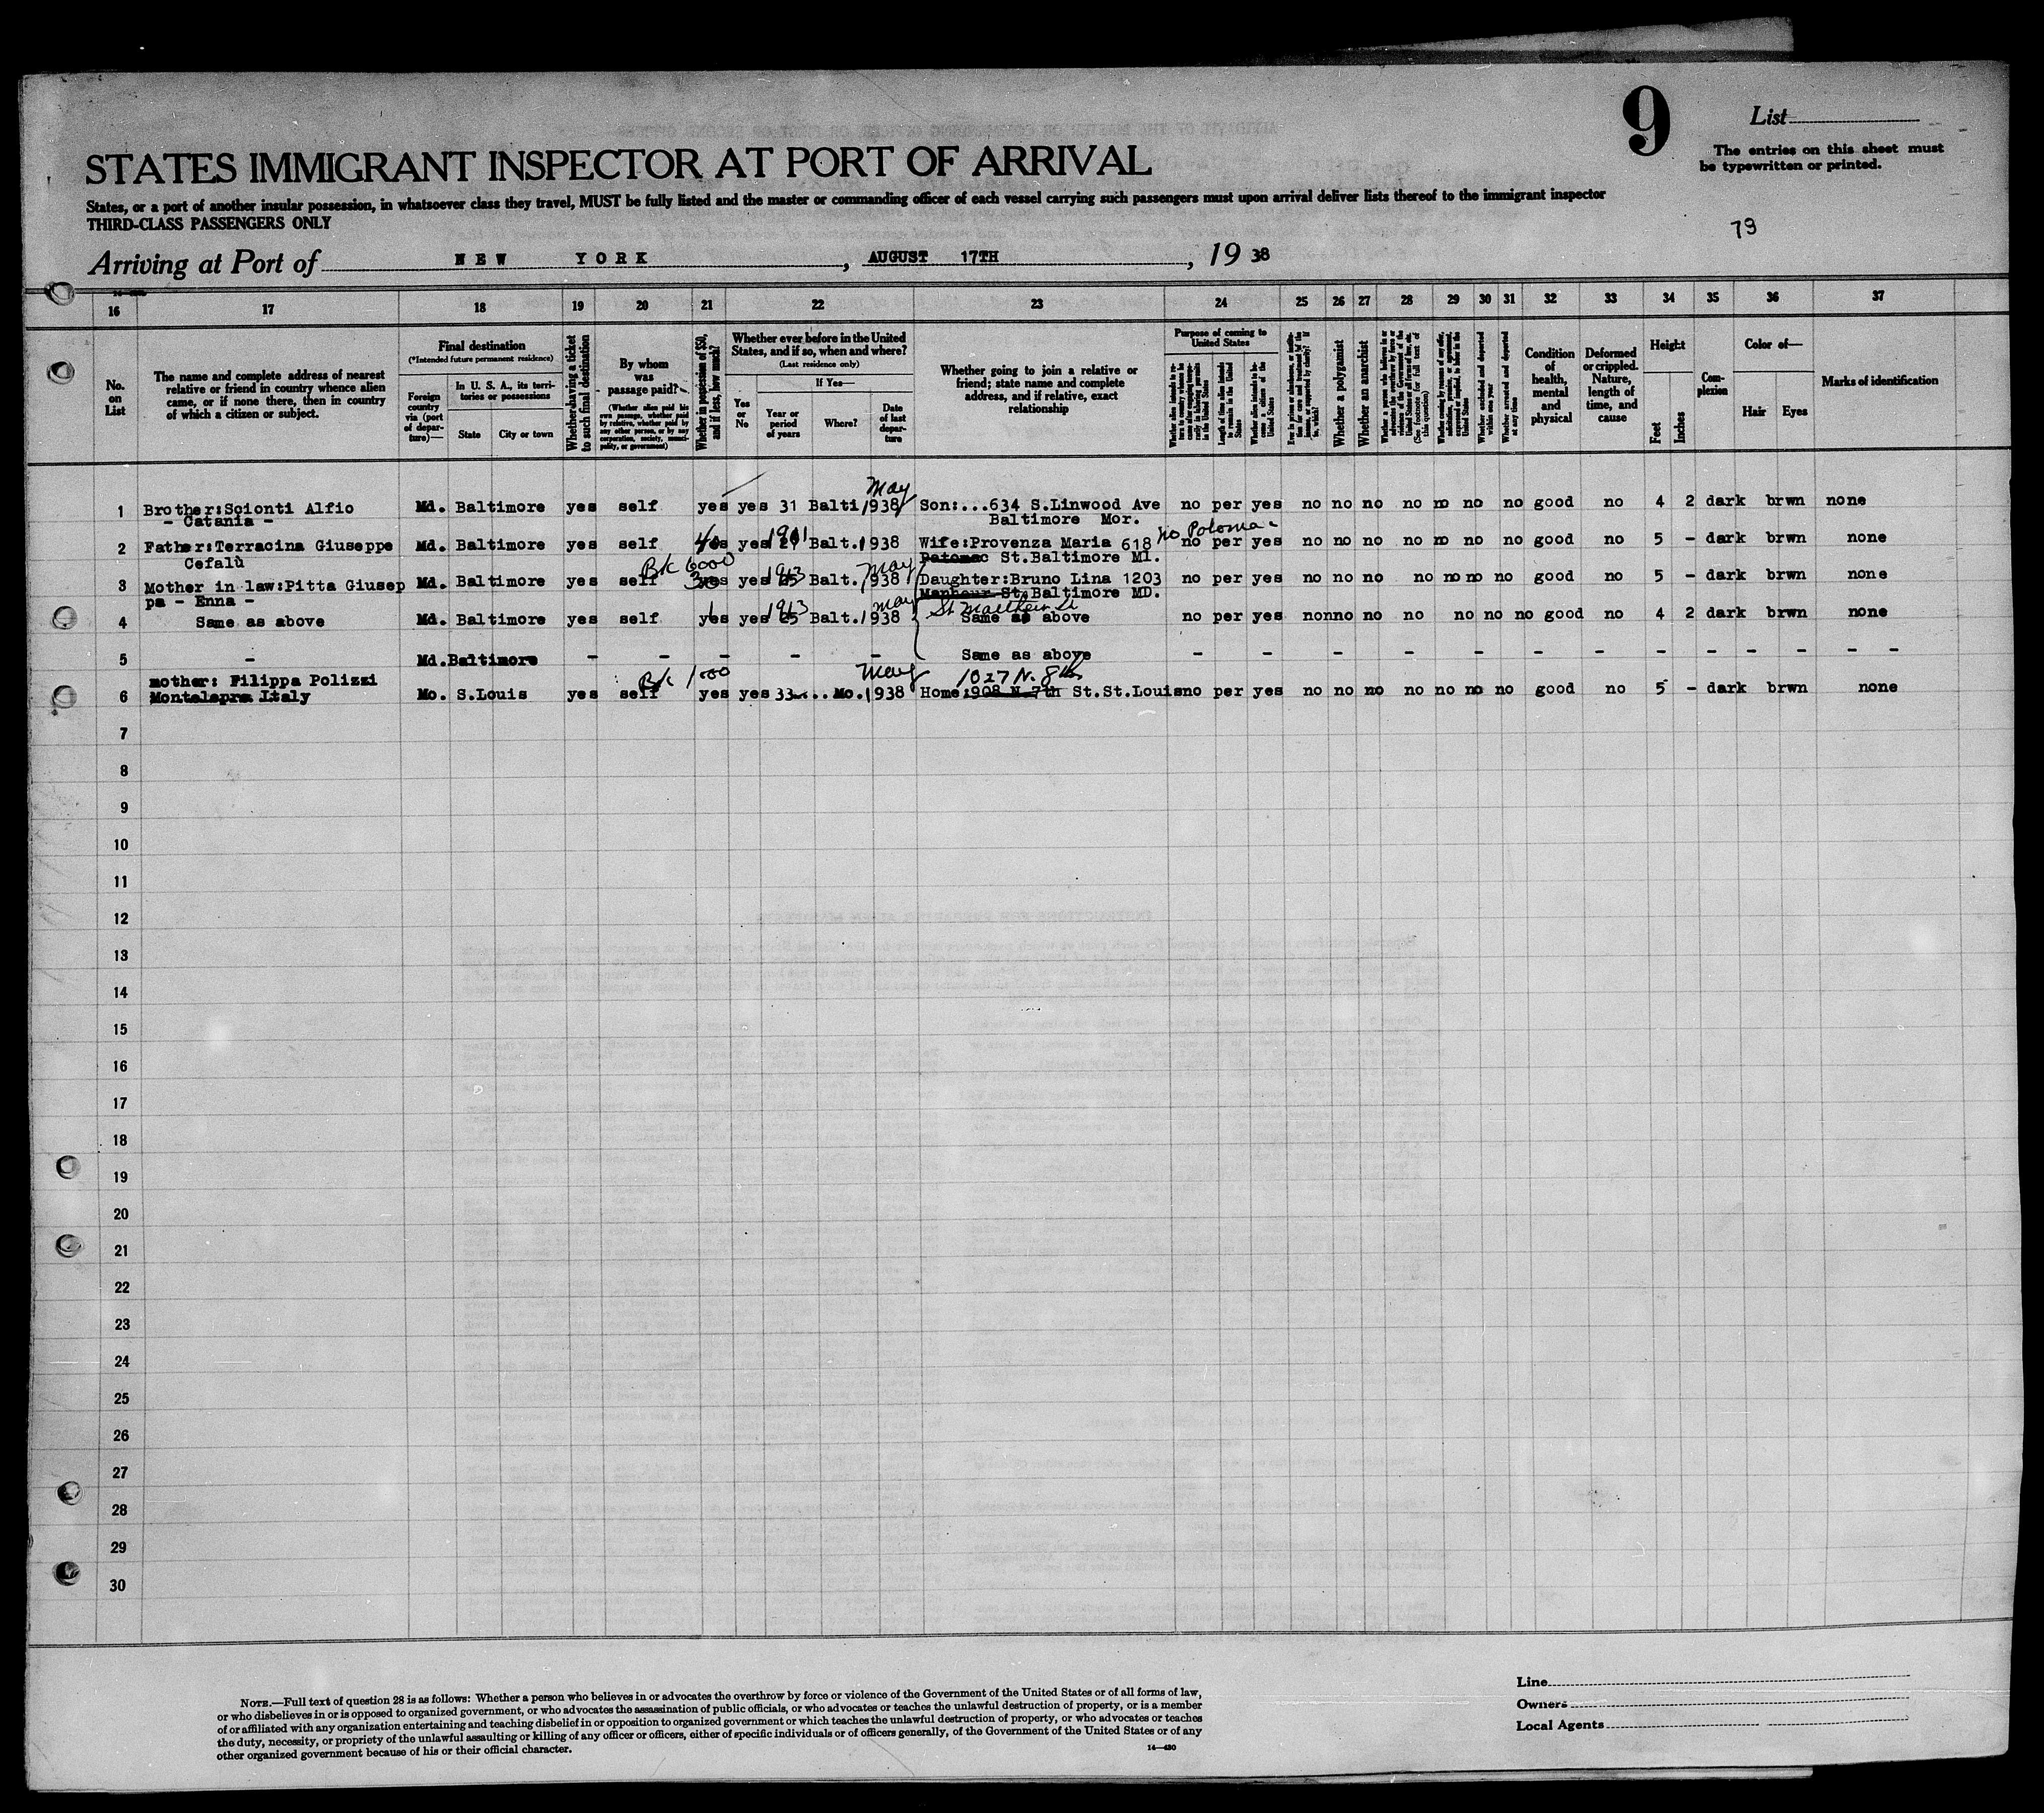 9
List
The entries on this sheet must
be typewritten or printed.
STATES IMMIGRANT INSPECTOR AT PORT OF ARRIVAL
States, or a port of another insular possession, in whatsoever class they travel, MUST be fully listed and the master or commanding officer of each vessel carrying such passengers must upon arrival deliver lists thereof to the immigrant inspector
THIRD-CLASS PASSENGERS ONLY
79
Arriving at Port of NEW YORK, AUGUST 17TH, 19 38
16 17 18 19 20 21 22 23 24 25 26 27 28 29 30 31 32 33 34 35 36 37
No. on List
The name and complete address of nearest
relative or friend in country whence alien
came, or if none there, then in country
of which a citizen or subject.
Final destination
(*Intended future permanent residence)
Foreign country via (port of departure)—
In U. S. A., its territories or possessions
State
City or town
Whether having a ticket to such final destination
By whom was passage paid?
(Whether alien paid his own passage, whether paid by relative, whether paid by any other person, or by any corporation, society, municipality, or government)
Whether in possession of $50, and if less, how much?
Whether ever before in the United
States, and if so, when and where?
(Last residence only)
Yes or No
If Yes—
Year or period of years
Where?
Date of last departure
Whether going to join a relative or
friend; state name and complete
address, and if relative, exact
relationship
Purpose of coming to United States
Length of time alien intends to remain in the United States
Whether alien intends to become a citizen of the United States
Whether a polygamist
Whether an anarchist
(See footnote for full text of this question)
Whether excluded and deported within one year
Whether arrested and deported at any time
Condition of health, mental and physical
Deformed or crippled. Nature, length of time, and cause
Height
Feet
Inches
Complexion
Color of—
Hair
Eyes
Marks of identification
May
1 Brother:Scionti Alfio Md. Baltimore yes self yes yes 31 Balti 1938 Son:...634 S.Linwood Ave no per yes no no no no no no no good no 4 2 dark brwn none
- Catania - Baltimore Mor.
1901
2 Father:Terracina Giuseppe Md. Baltimore yes self yes yes Balt. 1938 Wife:Provenza Maria 618 no per yes no no no no no no no good no 5 - dark brwn none
Cefalù St.Baltimore MI.
BK 6000 1913 May
3 Mother in law:Pitta Giusep Md. Baltimore yes self yes yes Balt. 1938 Daughter:Bruno Lina 1203 no per yes no no no no no no no good no 5 - dark brwn none
pa - Enna - St.Baltimore MD.
1913 May St Matthew St
4 Same as above Md. Baltimore yes self yes yes 25 Balt. 1938 Same as above no per yes no no no no no no no good no 4 2 dark brwn none
5 - Md. Baltimore - - - - - - Same as above - - - - - - - - - - - - - - - -
mother: Filippa Polizzi BK 1000 May 1027 N. 8th
6 Montelepre Italy Mo. S.Louis yes self yes yes 33... Mo. 1938 Home:908 N 7th St.St.Louis no per yes no no no no no no no good no 5 - dark brwn none
7
8
9
10
11
12
13
14
15
16
17
18
19
20
21
22
23
24
25
26
27
28
29
30
NOTE.—Full text of question 28 is as follows: Whether a person who believes in or advocates the overthrow by force or violence of the Government of the United States or of all forms of law,
or who disbelieves in or is opposed to organized government, or who advocates the assassination of public officials, or who advocates or teaches the unlawful destruction of property, or is a member
of or affiliated with any organization entertaining and teaching disbelief in or opposition to organized government or which teaches the unlawful destruction of property, or who advocates or teaches
the duty, necessity, or propriety of the unlawful assaulting or killing of any officer or officers, either of specific individuals or of officers generally, of the Government of the United States or of any
other organized government because of his or their official character.
14—480
Line
Owners
Local Agents